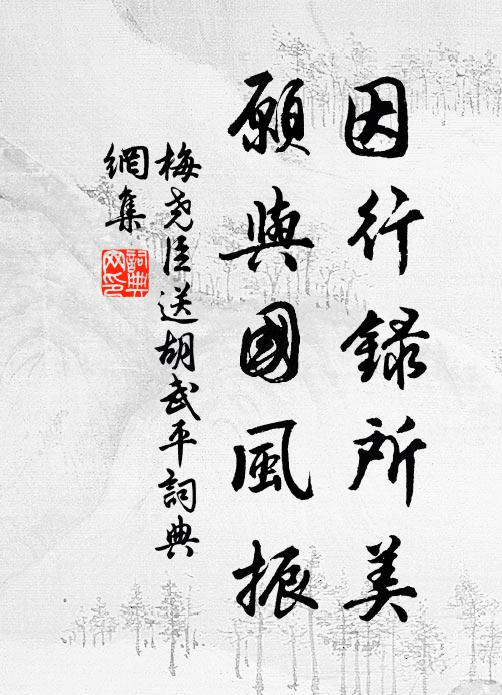 因行錄所美
願與國風振
梅尧臣送胡武平詞典
網集
詞典
网印